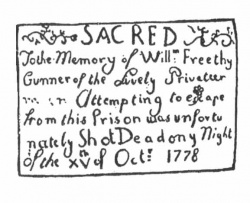 SACRED
To the Memory of Willm Freethy
Gunner of the Lively Privateer
Attempting to escape
from this Prison was unfortu
nately Shot Dead on yͤ Night
of the XVth of Octr 1778